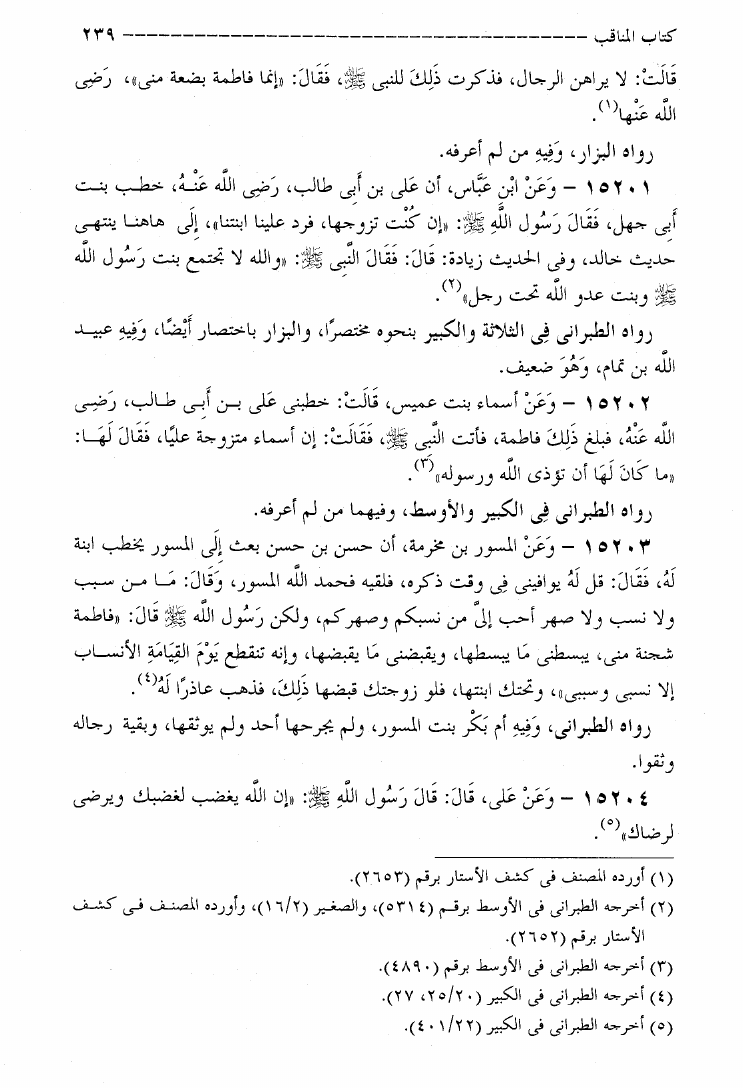 كتاب المناقب ------------------------------------- ٢٣٩
قَالَتْ: لا يراهن الرجال، فذكرت ذَلِكَ للنبى ﷺ، فَقَالَ: «إنما فاطمة بضعة منى»، رَضِى
اللَّه عَنْها(١).
رواه البزار، وَفِيهِ من لم أعرفه.
١٥٢٠١ – وَعَنْ ابْن عَبَّاس، أن عَلى بن أَبى طالب، رَضِى اللَّه عَنْـهُ، خطـب بنـت
أَبى جهل، فَقَالَ رَسُول اللَّهِ ﷺ: «إن كُنْت تزوجها، فرد علينا ابنتنا»، إِلَى هاهنـا ينتهـى
حديث خالد، وفى الحديث زيادة: قَالَ: فَقَالَ النَّبِى ﷺ: «والله لا تجتمع بنت رَسُول اللَّه
ﷺ وبنت عدو اللَّه تحت رجل»(٢).
رواه الطبرانى فِى الثلاثة والكبير بنحوه مختصرًا، والبزار باختصار أَيْضًا، وَفِيهِ عبيـد
اللَّه بن تمام، وَهُوَ ضعيف.
١٥٢٠٢ – وَعَنْ أسماء بنت عميس، قَالَتْ: خطبنى عَلى بـن أَبـى طـالب، رَضِـى
اللَّه عَنْهُ، فبلغ ذَلِكَ فاطمة، فأتت النَّبِى ﷺ، فَقَالَتْ: إن أسماء متزوجة عليًا، فَقَالَ لَهَـا:
«ما كَانَ لَهَا أن تؤذى اللَّه ورسوله»(٣).
رواه الطبرانى فِى الكبير والأوسط، وفيهما من لم أعرفه.
١٥٢٠٣ – وَعَنْ المسور بن مخرمة، أن حسن بن حسن بعث إِلَى المسور يخطب ابنة
لَهُ، فَقَالَ: قل لَهُ يوافينى فِى وقت ذكره، فلقيه فحمد اللَّه المسور، وَقَالَ: مَـا مـن سبب
ولا نسب ولا صهر أحب إلىَّ من نسبكم وصهركم، ولكن رَسُول اللَّه ﷺ قَالَ: «فاطمة
شجنة منى، يبسطنى مَا يبسطها، ويقبضنى مَا يقبضها، وإنه تنقطع يَوْمَ القِيَامَةِ الأنسـاب
إلا نسبى وسببى»، وتحتك ابنتها، فلو زوجتك قبضها ذَلِكَ، فذهب عاذرًا لَهُ(٤).
رواه الطبرانى، وَفِيهِ أم بَكْر بنت المسور، ولم يجرحها أحد ولم يوثقها، وبقية رجاله
وثقوا.
١٥٢٠٤ – وَعَنْ عَلى، قَالَ: قَالَ رَسُول اللَّهِ ﷺ: «إن اللَّه يغضب لغضبك ويرضى
لرضاك»(٥).
(١) أورده المصنف فى كشف الأستار برقم (٢٦٥٣).
(٢) أخرجه الطبرانى فى الأوسط برقـم (٥٣١٤)، والصغير (١٦/٢)، وأورده المصنـف فـى كشف
الأستار برقم (٢٦٥٢).
(٣) أخرجه الطبرانى فى الأوسط برقم (٤٨٩٠).
(٤) أخرجه الطبرانى فى الكبير (٢٥/٢٠، ٢٧).
(٥) أخرجه الطبرانى فى الكبير (٤٠١/٢٢).